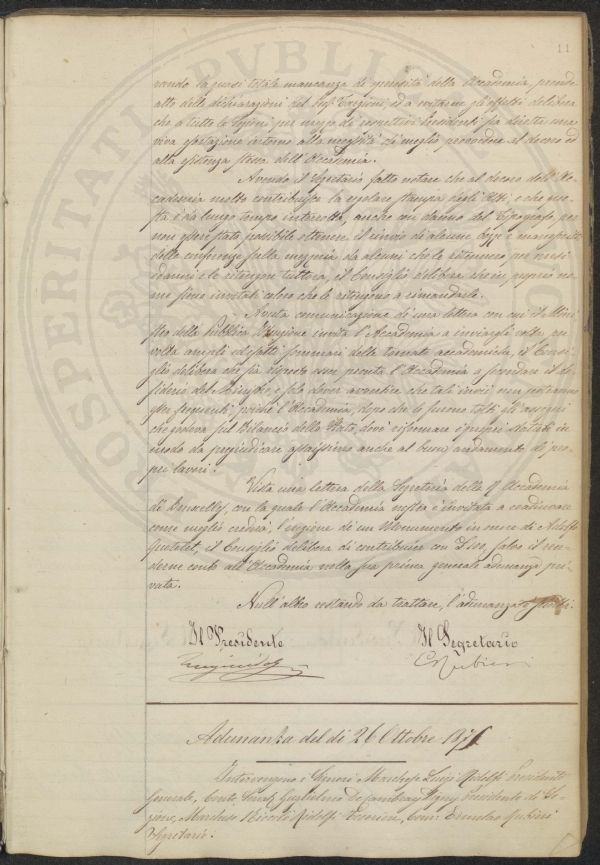 11
rando la quasi totale mancanza di pubblicità della Accademia, prende
atto delle dichiarazioni del Sig. Targioni, ed a evitarne gli effetti delibera
che a tutte le Sezioni per mezzo dei respettivi Presidenti sia diretta una
viva esortazione intorno alla necessità di meglio provvedere al decoro ed
alla esistenza stessa dell'Accademia.
Avendo il Segretario fatto notare che al decoro dell'Ac-
cademia molto contribuisce la regolare stampa degli Atti, e che que-
sta è da lungo tempo interrotta, anche con danno del Tipografo, per
non essere stato possibile ottenere il rinvio di alcune bozze e manoscritti
delle conferenze sulla da alcuni che le ritennero per
e le ritengono tuttora, il Consiglio delibera che in proprio no-
me siano invitati coloro che le ritengono a rimandarle.
Avuta comunicazione di una lettera con cui il Mini-
stro della Pubblica Istruzione invita l'Accademia a inviargli volta per
volta ampli ed esatti sommari delle tornate accademiche, il Consi-
glio delibera che sia risposto esser pronta l'Accademia a secondare il de-
siderio del Ministro; e solo dover avvertire che tali invii non potranno
esser frequenti, poichè l'Accademia, dopo che le furono tolti gli assegni
che godeva sul Bilancio dello Stato, dovè riformare i propri statuti in
modo da pregiudicare assaissimo anche al buon andamento dei pro-
pri lavori.
Vista una lettera della Segreteria della R. Accademia
di Bruxelles, con la quale l'Accademia nostra è invitata a coadiuvare
come meglio crederà, l'erezione di un Monumento in onore di Adolfo
Quetelet, il Consiglio delibera di contribuire con L. 100, salvo il ren-
derne conto all'Accademia nella sua prima generale adunanza pri-
vata.
Null'altro restando da trattare, l'adunanza è sciolta.
Il Presidente Il Segretario
C. Rubieri
Adunanza del dì 26 Ottobre 1876
Intervengono i Signori Marchese Luigi Ridolfi Presidente
Generale, Conte Guglielmo De Cambray Digny Presidente di Se-
zione, Marchese Niccolò Ridolfi Economo, Comm. Ermolao Rubieri
Segretario.